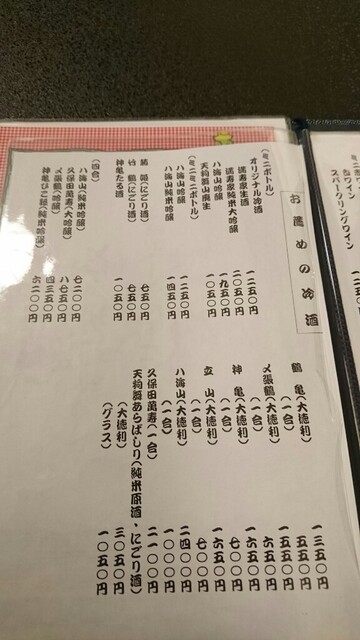 お薦めの冷酒
(ミニボトル)
オリジナル冷酒 一二五〇円
誠寿家生酒
誠寿家純米大吟醸 二〇五〇円
八海山吟醸 一九五〇円
天狗舞山廃生 一〇五〇円
(ミニミニボトル)
八海山吟醸 一二五〇円
八海山純米吟醸 一四五〇円
(にごり酒) 七五〇円
竹鶴(にごり酒) 七五〇円
神亀たる酒 一〇五〇円
(四合)
八海山(純米吟醸) 七二〇〇円
久保田萬寿(大吟醸) 八七五〇円
〆張鶴(吟醸) 四三五〇円
神亀ひこ孫(純米吟醸) 六二〇〇円
鶴亀(大徳利) 一三五〇円
(一合) 五五〇円
〆張鶴(大徳利) 一五五〇円
(一合) 六五〇円
神亀(大徳利) 一六五〇円
(一合) 七〇〇円
立山(大徳利) 一六五〇円
(一合) 七〇〇円
八海山(大徳利) 二四〇〇円
(一合) 一〇〇〇円
久保田萬寿(一合) 二一〇〇円
天狗舞あらばしり(純米原酒・にごり酒)
(大徳利) 三〇五〇円
(グラス) 一〇五〇円
白ワイン
スパークリングワイン